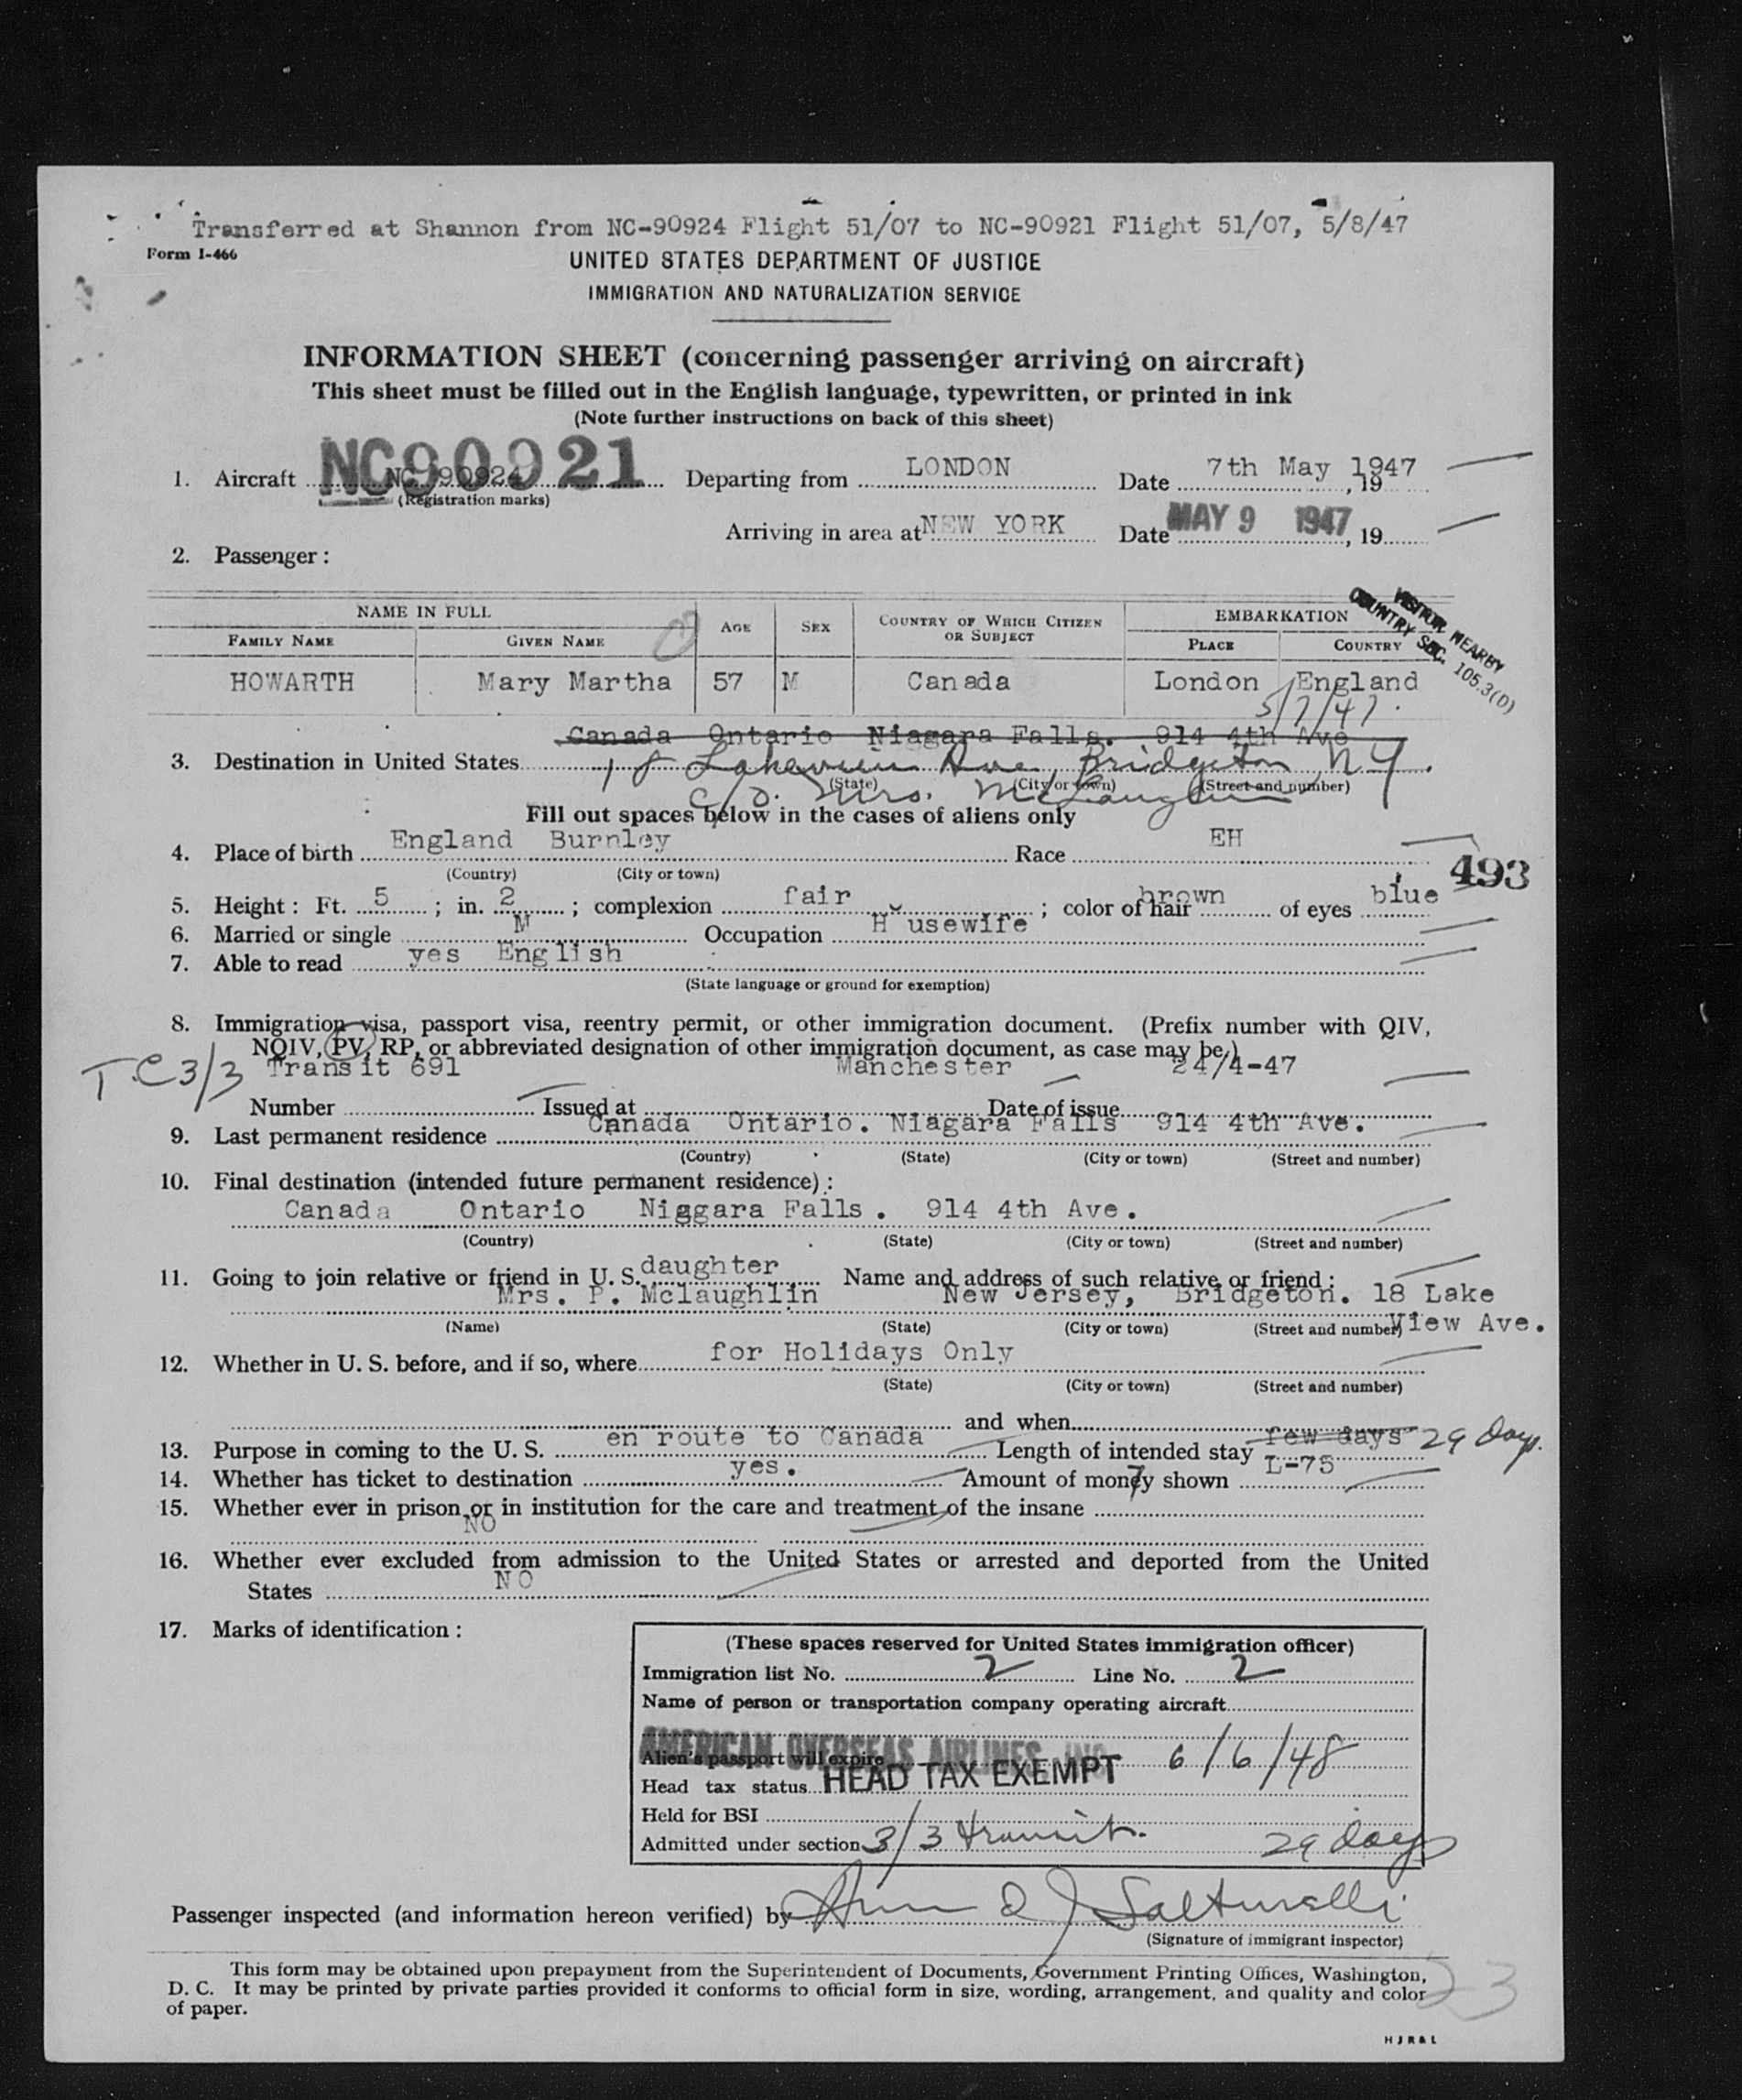 Transferred at Shannon from NC-90924 Flight 51/07 to NC-90921 Flight 51/07, 5/8/47
Form I-466
UNITED STATES DEPARTMENT OF JUSTICE
IMMIGRATION AND NATURALIZATION SERVICE
INFORMATION SHEET (concerning passenger arriving on aircraft)
This sheet must be filled out in the English language, typewritten, or printed in ink
(Note further instructions on back of this sheet)
1. Aircraft NC 90924 NC90921 Departing from LONDON Date 7th May 1947, 19
(Registration marks)
Arriving in area at NEW YORK Date MAY 9 1947, 19
2. Passenger:
NAME IN FULL AGE SEX COUNTRY OF WHICH CITIZEN OR SUBJECT EMBARKATION
FAMILY NAME GIVEN NAME PLACE COUNTRY
VISITOR NEARBY
COUNTRY SEC. 105.3(D)
HOWARTH Mary Martha 57 M Canada London England
5/7/47.
Canada Ontario Niagara Falls. 914 4th Ave
3. Destination in United States 18 Lakeview Ave, Bridgeton, N.Y.
(State) (City or town) (Street and number)
c/o. Mrs. McLaughlin
Fill out spaces below in the cases of aliens only
4. Place of birth England Burnley Race EH
(Country) (City or town)
493
5. Height: Ft. 5; in. 2; complexion fair; color of hair brown of eyes blue
6. Married or single M Occupation H usewife
7. Able to read yes English
(State language or ground for exemption)
8. Immigration visa, passport visa, reentry permit, or other immigration document. (Prefix number with QIV,
NQIV, PV, RP, or abbreviated designation of other immigration document, as case may be.)
TC 3/3 Transit 691 Manchester 24/4-47
Number Issued at Date of issue
9. Last permanent residence Canada Ontario. Niagara Falls 914 4th Ave.
(Country) (State) (City or town) (Street and number)
10. Final destination (intended future permanent residence):
Canada Ontario Niggara Falls. 914 4th Ave.
(Country) (State) (City or town) (Street and number)
11. Going to join relative or friend in U. S. daughter Name and address of such relative or friend:
Mrs. P. Mclaughlin New Jersey, Bridgeton. 18 Lake
(Name) (State) (City or town) (Street and number) View Ave.
12. Whether in U. S. before, and if so, where for Holidays Only
(State) (City or town) (Street and number)
and when
13. Purpose in coming to the U. S. en route to Canada Length of intended stay few days 29 days.
14. Whether has ticket to destination yes. Amount of money shown L-75
15. Whether ever in prison or in institution for the care and treatment of the insane
NO
16. Whether ever excluded from admission to the United States or arrested and deported from the United
States NO
17. Marks of identification:
(These spaces reserved for United States immigration officer)
Immigration list No. 2 Line No. 2
Name of person or transportation company operating aircraft
AMERICAN OVERSEAS AIRLINES, INC.
Alien's passport will expire 6/6/48
Head tax status HEAD TAX EXEMPT
Held for BSI
Admitted under section 3/3 transit. 29 days
Passenger inspected (and information hereon verified) by
(Signature of immigrant inspector)
This form may be obtained upon prepayment from the Superintendent of Documents, Government Printing Offices, Washington,
D. C. It may be printed by private parties provided it conforms to official form in size, wording, arrangement, and quality and color
of paper.
23
H J R & L